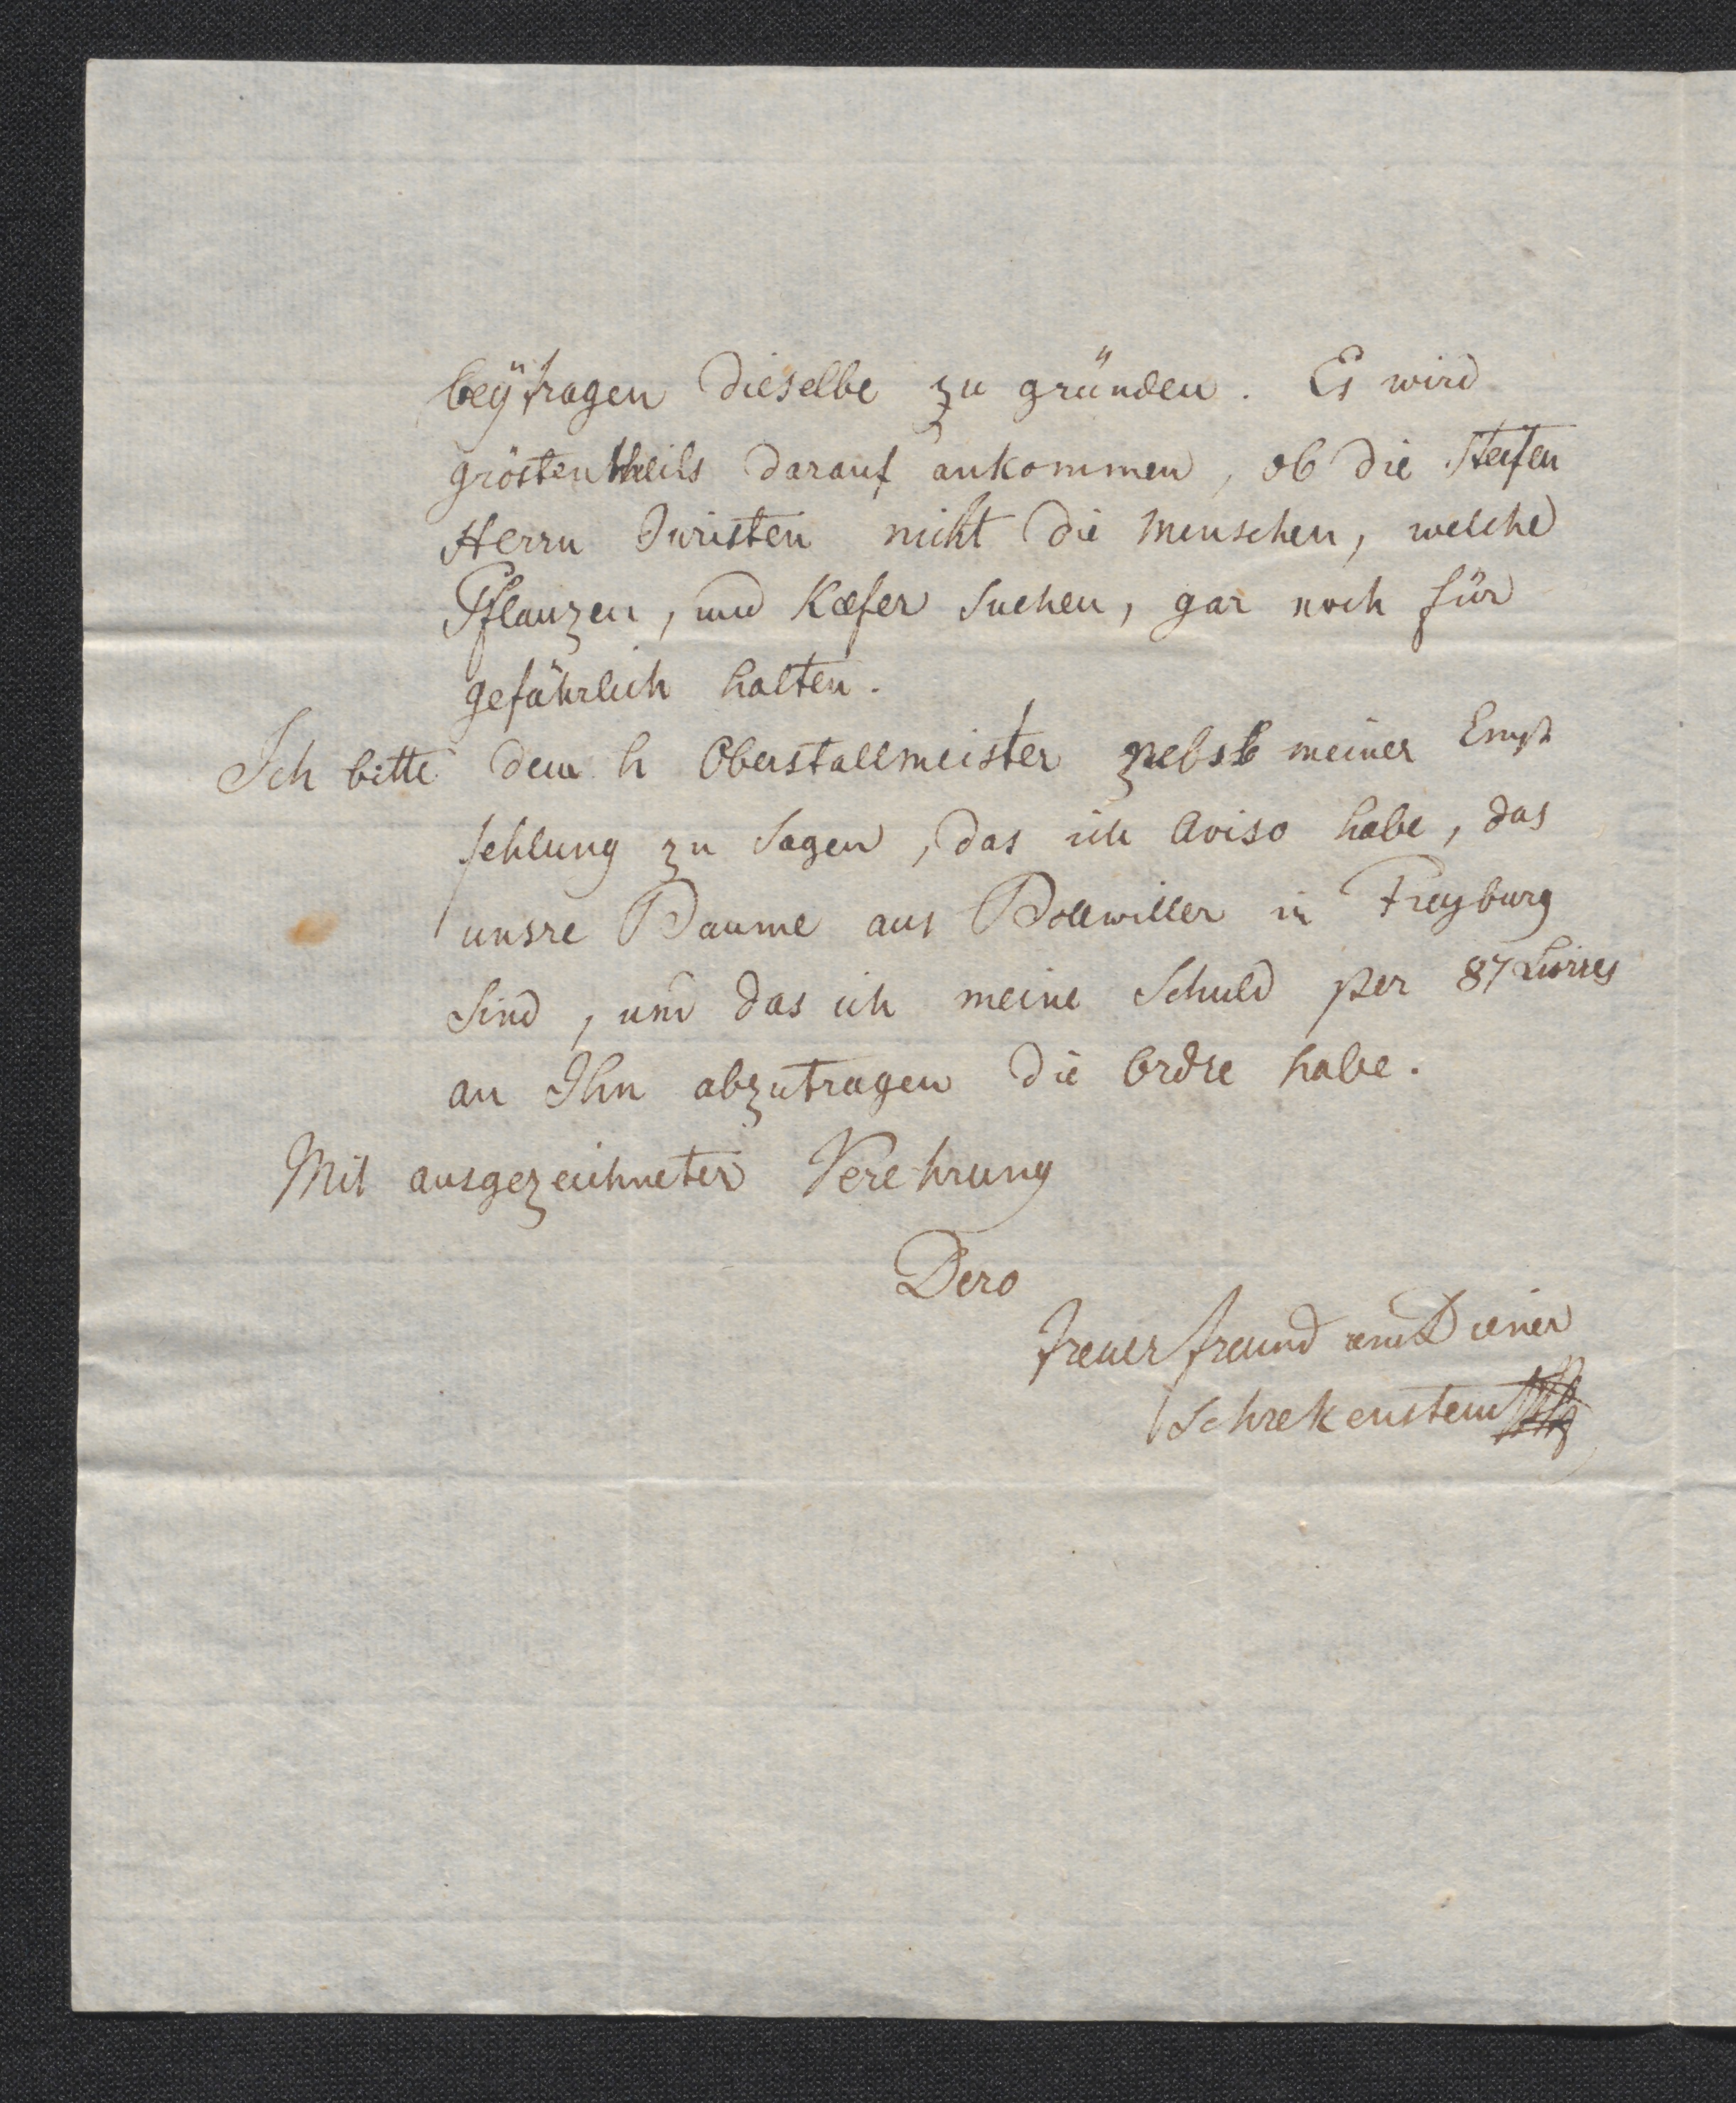 beÿtragen dieselbe zu gründen. Es wird
gröstentheils darauf ankommen, ob die steifen
Herrn Juristen nicht die Menschen, welche
Pflanzen, und Kæfer suchen, gar noch für
gefährlich halten.
Ich bitte dem h Oberstallmeister nebst meiner Empf
fehlung zu sagen, das ich Aviso habe, das
unsre Baume aus Bollwiller in Freyburg
sind, und das ich meine Schuld per 87 Livres
an Ihn abzutragen die Ordre habe.
Mit ausgezeichneter Verehrung
Dero
treuer freund und Diener
Schrekenstein